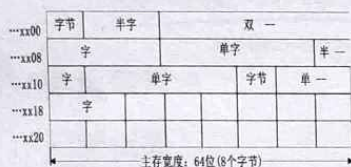 …xx00 字节 半字 双 一
…xx08 字 单字 半一
…xx10 字 单字 字节 单 一
…xx18 字
…xx20
主存宽度：64位(8个字节)